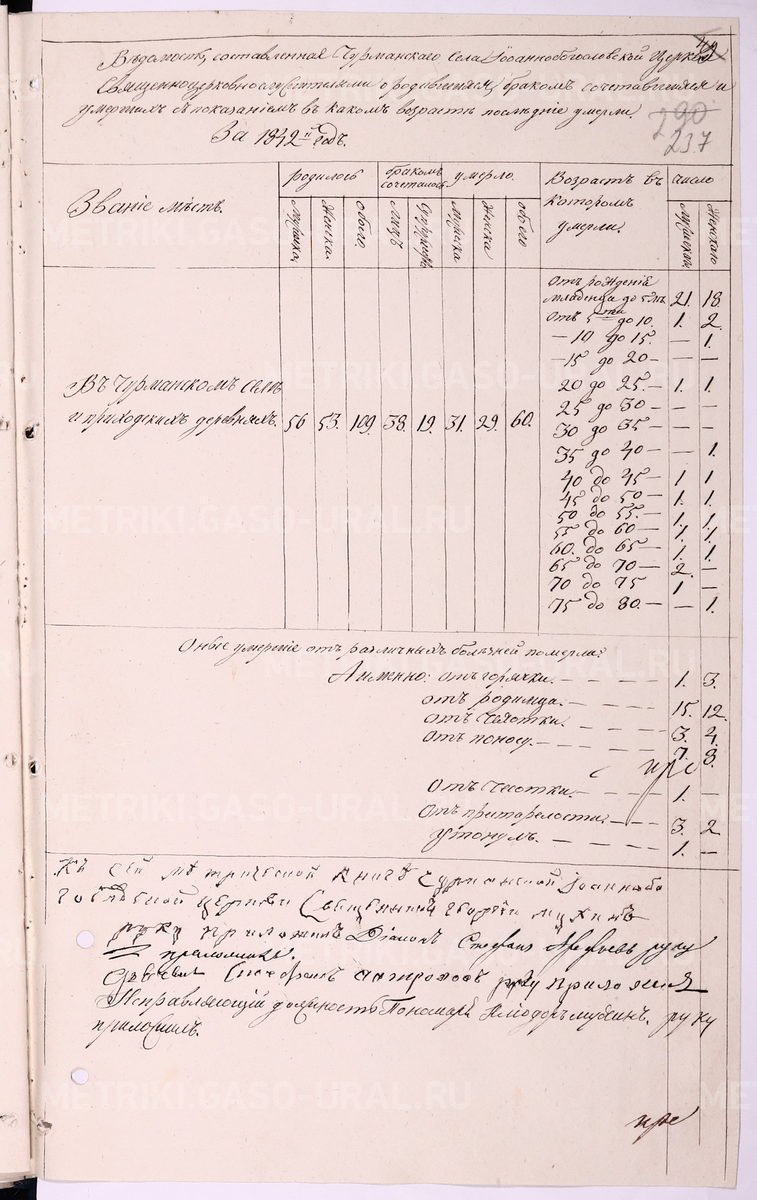 Вѣдомость, составленная Чурманскаго Села Іоаннобогословской Церкви
Священноцерковнослужителями о родившихся, бракомъ сочетавшихся и
умершихъ съ показаніемъ въ какомъ возрастѣ послѣдніе умерли.
За 1842й годъ.
290
237
Званіе мѣстъ.
родилось
бракомъ сочеталось
умерло.
Возрастъ въ которомъ умерли.
число
Мужска.
Женска.
обоего.
Лицъ
Мужска
Женска
обоего
Мужскаго
Женскаго
Въ Чурманскомъ селѣ
и приходскихъ деревняхъ. 56 53. 109. 38. 19. 31. 29. 60.
отъ рожденія
младенца до 5 лѣтъ 21. 18.
отъ 5ти до 10. 1. 2.
— 10 до 15. — 1.
— 15 до 20 — — —
20 до 25. — 1. 1.
25 до 30 — — —
30 до 35 — — —
35 до 40 — — 1.
40 до 45 — 1 1
45 до 50 — 1. 1.
50 до 55. — 1. 1.
55 до 60 — 1. 1.
60. до 65 — 1. 1
65 до 70 — 2. —
70 до 75 1 —
75 до 80. — — 1.
Оные умершіе отъ различныхъ болѣзней померли:
А именно: отъ горячки. 1. 3.
отъ родимца. 15. 12.
отъ чахотки. 3. 4.
отъ поносу. 7. 8.
отъ чесотки. 1. —
отъ престарелости. 3. 2
утонулъ. 1. —
Къ сей метрической книгѣ Чурманской Іоаннобо
гословской церкви Священникъ Георгій Мухинъ
руку приложилъ Діаконъ Стефанъ Арефьевъ руку
приложилъ.
руку приложилъ
Исправляющій должность Пономаря Мухинъ. руку
приложилъ.
METRIKI.GASO-URAL.RU